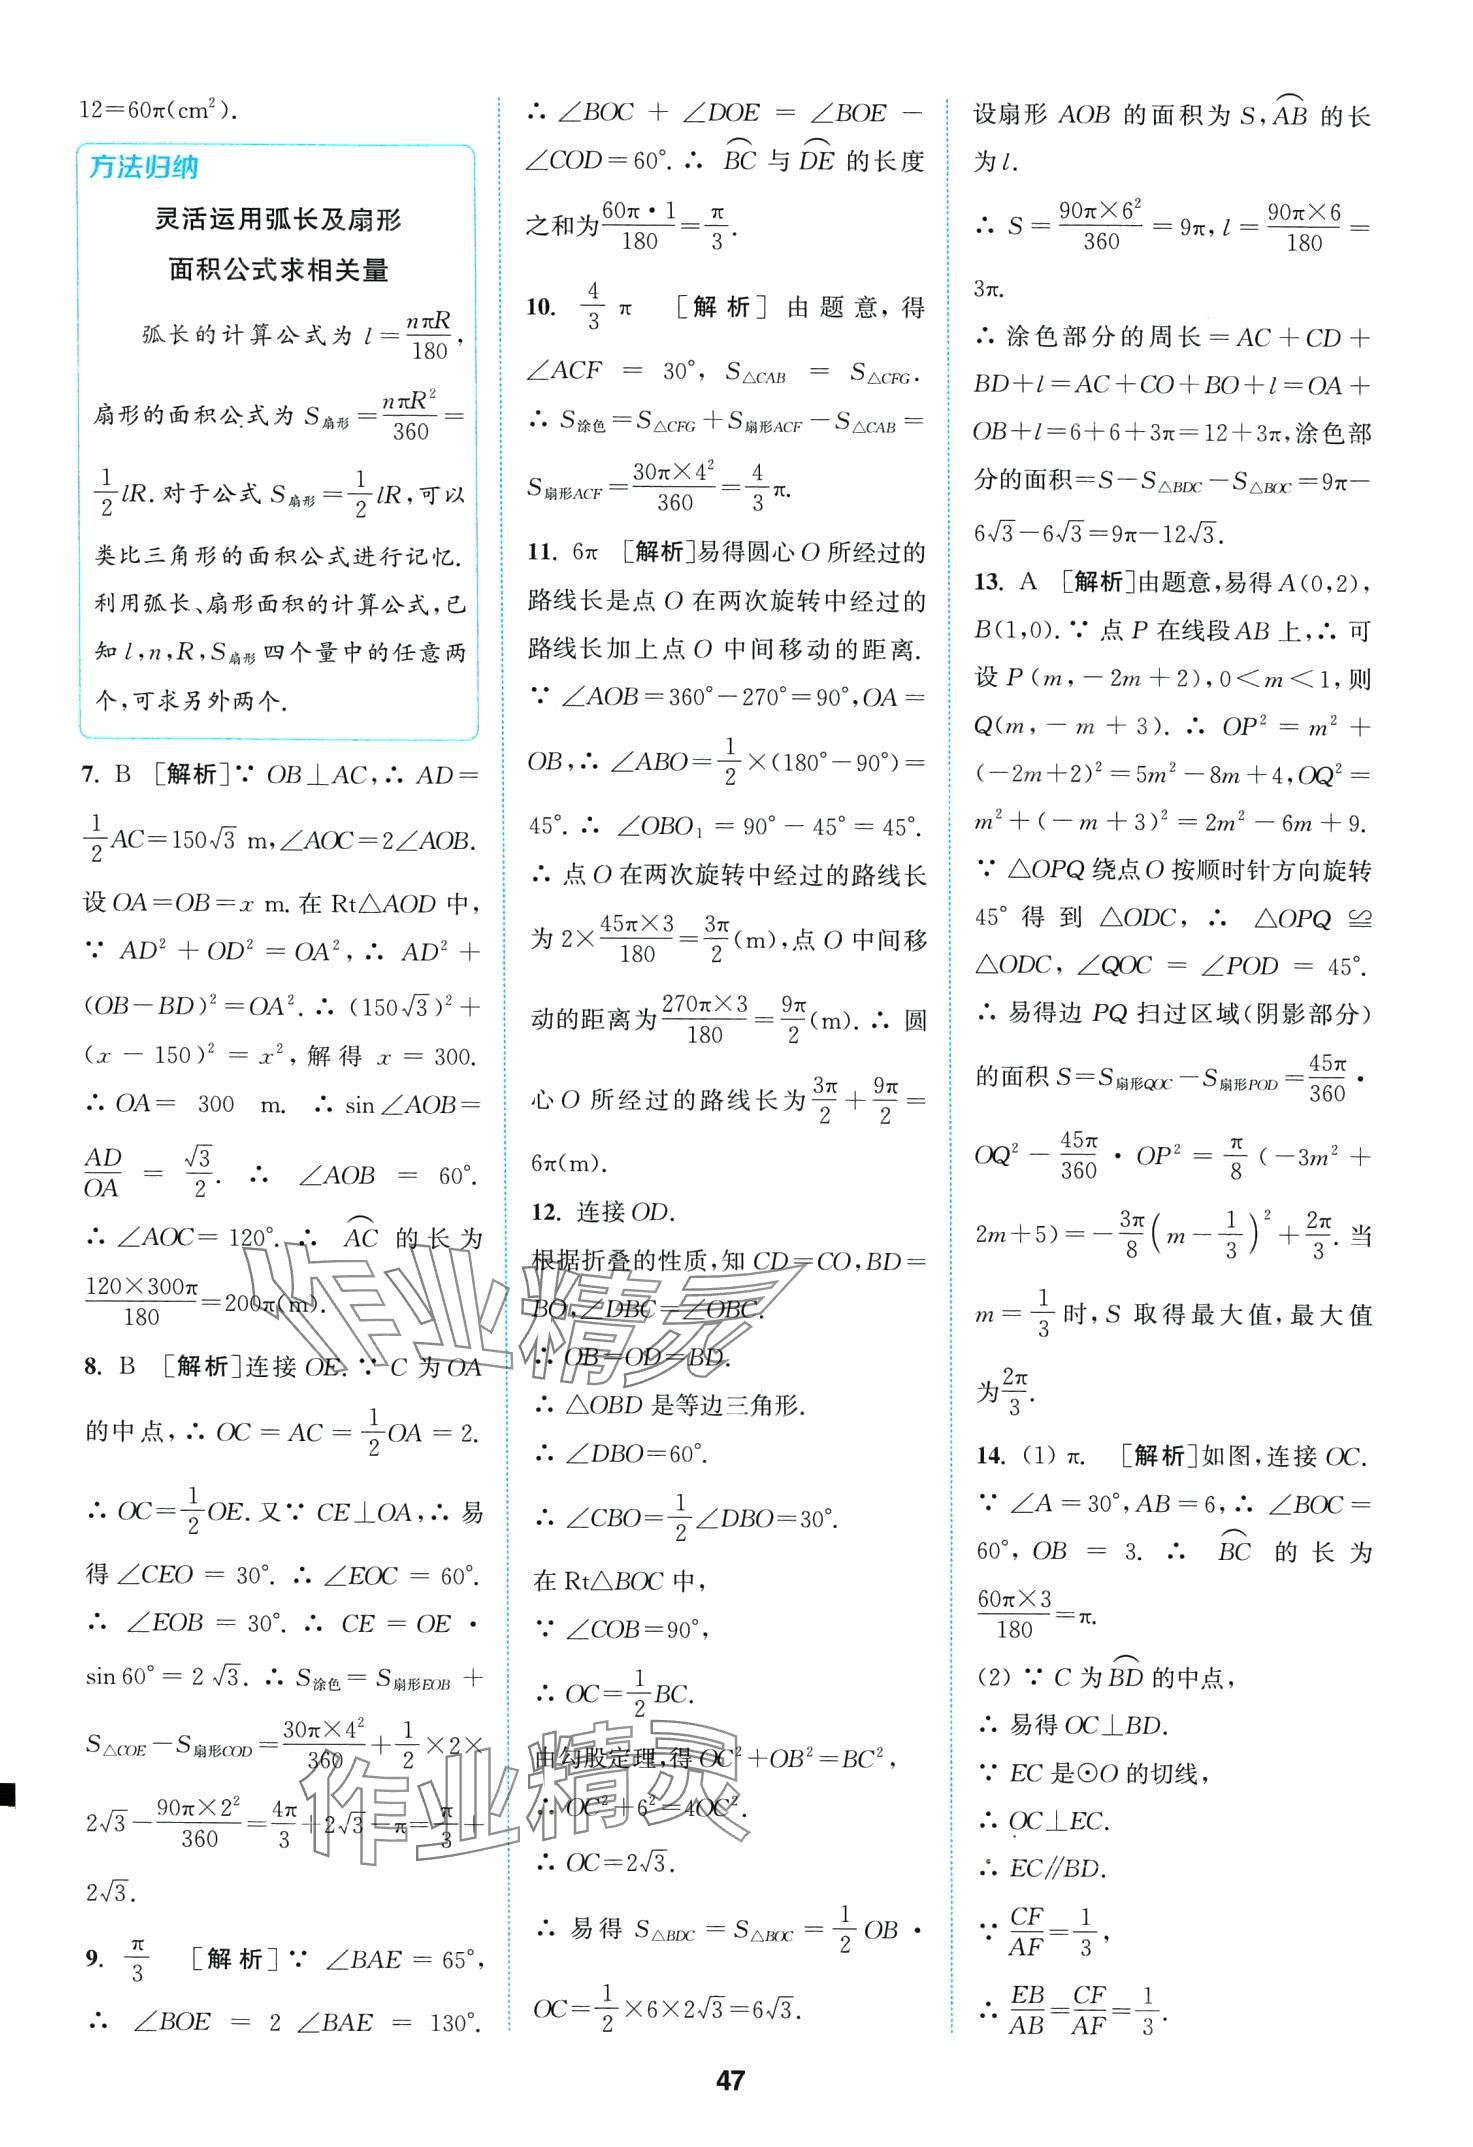 12=60π(cm²).
方法归纳
灵活运用弧长及扇形
面积公式求相关量
弧长的计算公式为 l=nπR/180,
扇形的面积公式为 S扇形=nπR²/360=
1/2 lR.对于公式 S扇形=1/2 lR,可以
类比三角形的面积公式进行记忆.
利用弧长、扇形面积的计算公式,已
知 l,n,R,S扇形四个量中的任意两
个,可求另外两个.
7. B [解析]∵ OB⊥AC,∴ AD=
1/2 AC=150√3 m,∠AOC=2∠AOB.
设 OA=OB=x m.在 Rt△AOD 中,
∵ AD²+OD²=OA²,∴ AD²+
(OB-BD)²=OA².∴ (150√3)²+
(x-150)²=x²,解得 x=300.
∴ OA= 300 m. ∴ sin∠AOB=
AD/OA = √3/2. ∴ ∠AOB = 60°.
∴ ∠AOC=120°.∴ ⌒AC 的长为
120×300π/180=200π(m).
8. B [解析]连接 OE.∵ C 为 OA
的中点,∴ OC=AC=1/2 OA=2.
∴ OC=1/2 OE.又∵ CE⊥OA,∴ 易
得∠CEO=30°.∴ ∠EOC=60°.
∴ ∠EOB=30°.∴ CE=OE·
sin 60°=2√3.∴ S涂色=S扇形EOB+
S△COE-S扇形COD=30π×4²/360+1/2×2×
2√3-90π×2²/360=4π/3+2√3-π=π/3+
2√3.
9. π/3 [解析]∵ ∠BAE=65°,
∴ ∠BOE = 2 ∠BAE = 130°.
∴ ∠BOC + ∠DOE = ∠BOE -
∠COD=60°.∴ ⌒BC 与 ⌒DE 的长度
之和为60π·1/180=π/3.
10. 4/3 π [解析]由题意,得
∠ACF = 30°, S△CAB = S△CFG.
∴ S涂色=S△CFG+S扇形ACF-S△CAB=
S扇形ACF=30π×4²/360=4/3 π.
11. 6π [解析]易得圆心 O 所经过的
路线长是点 O 在两次旋转中经过的
路线长加上点 O 中间移动的距离.
∵ ∠AOB=360°-270°=90°,OA=
OB,∴ ∠ABO=1/2×(180°-90°)=
45°.∴ ∠OBO₁=90°-45°=45°.
∴ 点 O 在两次旋转中经过的路线长
为 2×45π×3/180=3π/2(m),点 O 中间移
动的距离为270π×3/180=9π/2(m).∴ 圆
心 O 所经过的路线长为3π/2+9π/2=
6π(m).
12. 连接 OD.
根据折叠的性质,知 CD=CO,BD=
BO,∠DBC=∠OBC.
∴ OB=OD=BD.
∴ △OBD 是等边三角形.
∴ ∠DBO=60°.
∴ ∠CBO=1/2∠DBO=30°.
在 Rt△BOC 中,
∵ ∠COB=90°,
∴ OC=1/2 BC.
由勾股定理,得 OC²+OB²=BC²,
∴ OC²+6²=4OC².
∴ OC=2√3.
∴ 易得 S△BDC=S△BOC=1/2 OB·
OC=1/2×6×2√3=6√3.
设扇形 AOB 的面积为 S,⌒AB 的长
为 l.
∴ S=90π×6²/360=9π,l=90π×6/180=
3π.
∴ 涂色部分的周长=AC+CD+
BD+l=AC+CO+BO+l=OA+
OB+l=6+6+3π=12+3π,涂色部
分的面积=S-S△BDC-S△BOC=9π-
6√3-6√3=9π-12√3.
13. A [解析]由题意,易得 A(0,2),
B(1,0).∵ 点 P 在线段 AB 上,∴ 可
设 P(m,-2m+2),0<m<1,则
Q(m,-m+3).∴ OP²=m²+
(-2m+2)²=5m²-8m+4,OQ²=
m²+(-m+3)²=2m²-6m+9.
∵ △OPQ 绕点 O 按顺时针方向旋转
45°得到△ODC,∴ △OPQ≌
△ODC,∠QOC=∠POD=45°.
∴ 易得边 PQ 扫过区域(阴影部分)
的面积 S=S扇形QOC-S扇形POD=45π/360·
OQ²-45π/360·OP²=π/8(-3m²+
2m+5)=-3π/8(m-1/3)²+2π/3.当
m=1/3时,S 取得最大值,最大值
为2π/3.
14. (1) π. [解析]如图,连接 OC.
∵ ∠A=30°,AB=6,∴ ∠BOC=
60°,OB=3.∴ ⌒BC 的长为
60π×3/180=π.
(2) ∵ C 为⌒BD 的中点,
∴ 易得 OC⊥BD.
∵ EC 是⊙O 的切线,
∴ OC⊥EC.
∴ EC∥BD.
∵ CF/AF=1/3,
∴ EB/AB=CF/AF=1/3.
作业精灵
作业精灵
47